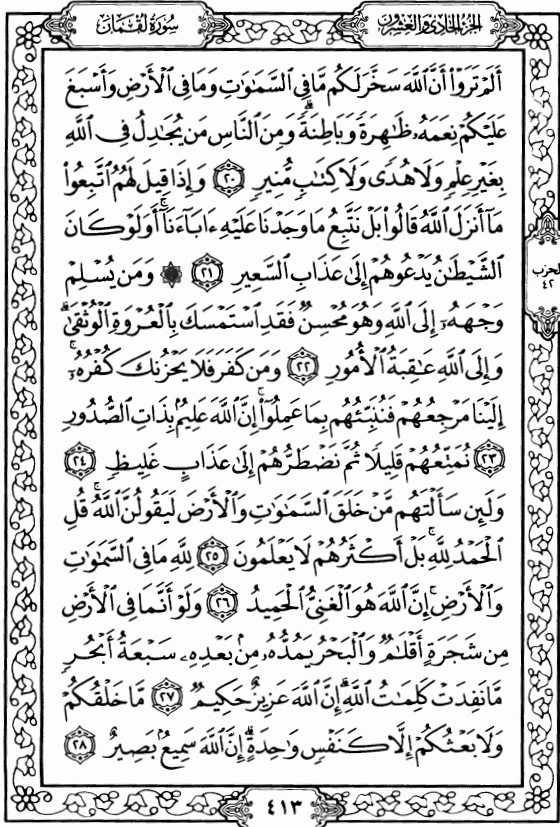 سُورَةُ لُقْمَانَ
الجُزْءُ الحَادِي وَالعِشْرُونَ
أَلَمْ تَرَوْا۟ أَنَّ ٱللَّهَ سَخَّرَ لَكُم مَّا فِى ٱلسَّمَٰوَٰتِ وَمَا فِى ٱلْأَرْضِ وَأَسْبَغَ
عَلَيْكُمْ نِعَمَهُۥ ظَٰهِرَةً وَبَاطِنَةً ۗ وَمِنَ ٱلنَّاسِ مَن يُجَٰدِلُ فِى ٱللَّهِ
بِغَيْرِ عِلْمٍ وَلَا هُدًى وَلَا كِتَٰبٍ مُّنِيرٍ ٢٠ وَإِذَا قِيلَ لَهُمُ ٱتَّبِعُوا۟
مَآ أَنزَلَ ٱللَّهُ قَالُوا۟ بَلْ نَتَّبِعُ مَا وَجَدْنَا عَلَيْهِ ءَابَآءَنَآ ۚ أَوَلَوْ كَانَ
ٱلشَّيْطَٰنُ يَدْعُوهُمْ إِلَىٰ عَذَابِ ٱلسَّعِيرِ ٢١ ۞ وَمَن يُسْلِمْ
وَجْهَهُۥٓ إِلَى ٱللَّهِ وَهُوَ مُحْسِنٌ فَقَدِ ٱسْتَمْسَكَ بِٱلْعُرْوَةِ ٱلْوُثْقَىٰ ۗ
وَإِلَى ٱللَّهِ عَٰقِبَةُ ٱلْأُمُورِ ٢٢ وَمَن كَفَرَ فَلَا يَحْزُنكَ كُفْرُهُۥٓ ۚ
إِلَيْنَا مَرْجِعُهُمْ فَنُنَبِّئُهُم بِمَا عَمِلُوٓا۟ ۚ إِنَّ ٱللَّهَ عَلِيمٌۢ بِذَاتِ ٱلصُّدُورِ
٢٣ نُمَتِّعُهُمْ قَلِيلًا ثُمَّ نَضْطَرُّهُمْ إِلَىٰ عَذَابٍ غَلِيظٍ ٢٤
وَلَئِن سَأَلْتَهُم مَّنْ خَلَقَ ٱلسَّمَٰوَٰتِ وَٱلْأَرْضَ لَيَقُولُنَّ ٱللَّهُ ۚ قُلِ
ٱلْحَمْدُ لِلَّهِ ۚ بَلْ أَكْثَرُهُمْ لَا يَعْلَمُونَ ٢٥ لِلَّهِ مَا فِى ٱلسَّمَٰوَٰتِ
وَٱلْأَرْضِ ۚ إِنَّ ٱللَّهَ هُوَ ٱلْغَنِىُّ ٱلْحَمِيدُ ٢٦ وَلَوْ أَنَّمَا فِى ٱلْأَرْضِ
مِن شَجَرَةٍ أَقْلَٰمٌ وَٱلْبَحْرُ يَمُدُّهُۥ مِنۢ بَعْدِهِۦ سَبْعَةُ أَبْحُرٍ
مَّا نَفِدَتْ كَلِمَٰتُ ٱللَّهِ ۗ إِنَّ ٱللَّهَ عَزِيزٌ حَكِيمٌ ٢٧ مَّا خَلْقُكُمْ
وَلَا بَعْثُكُمْ إِلَّا كَنَفْسٍ وَٰحِدَةٍ ۗ إِنَّ ٱللَّهَ سَمِيعٌۢ بَصِيرٌ ٢٨
الحزب
٤٢
٤١٣